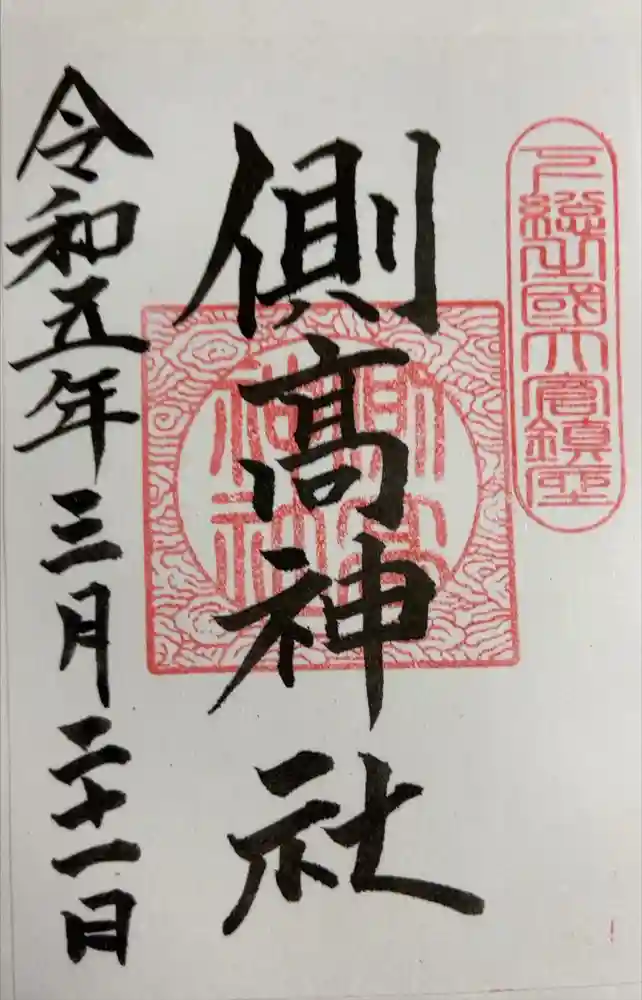 下総之國大倉鎮座
側高神社
側高神社
令和五年三月二十一日